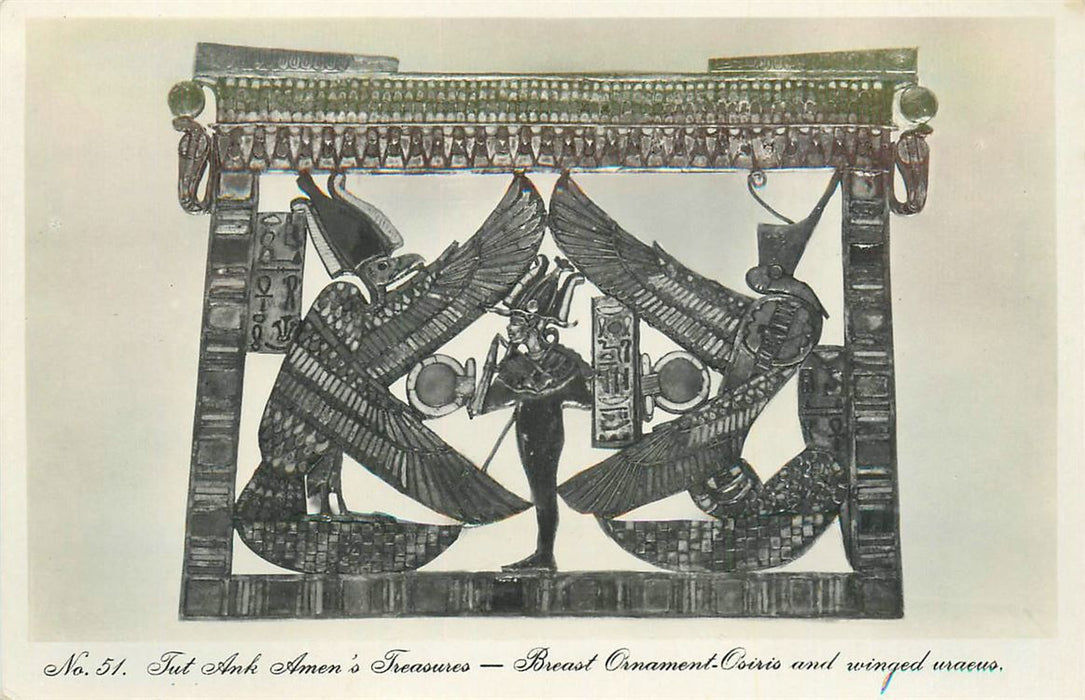 No. 51. Tut Ank Amen's Treasures — Breast Ornament-Osiris and winged uraeus.